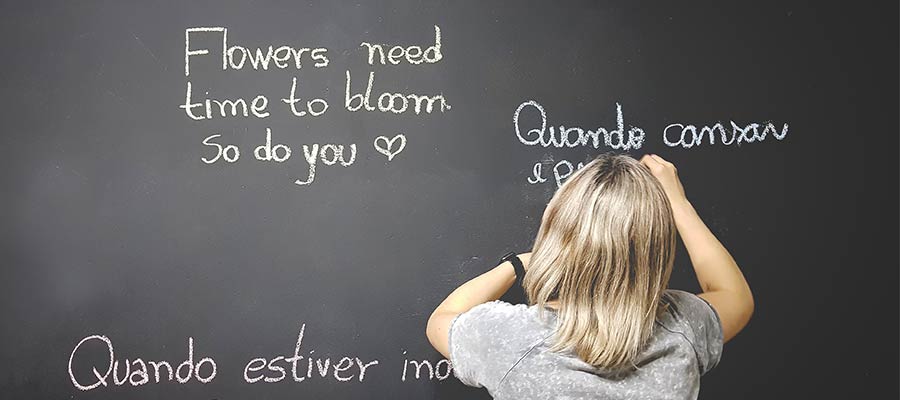 Flowers need
time to bloom
So do you ♡
Quando cansar
e
Quando estiver